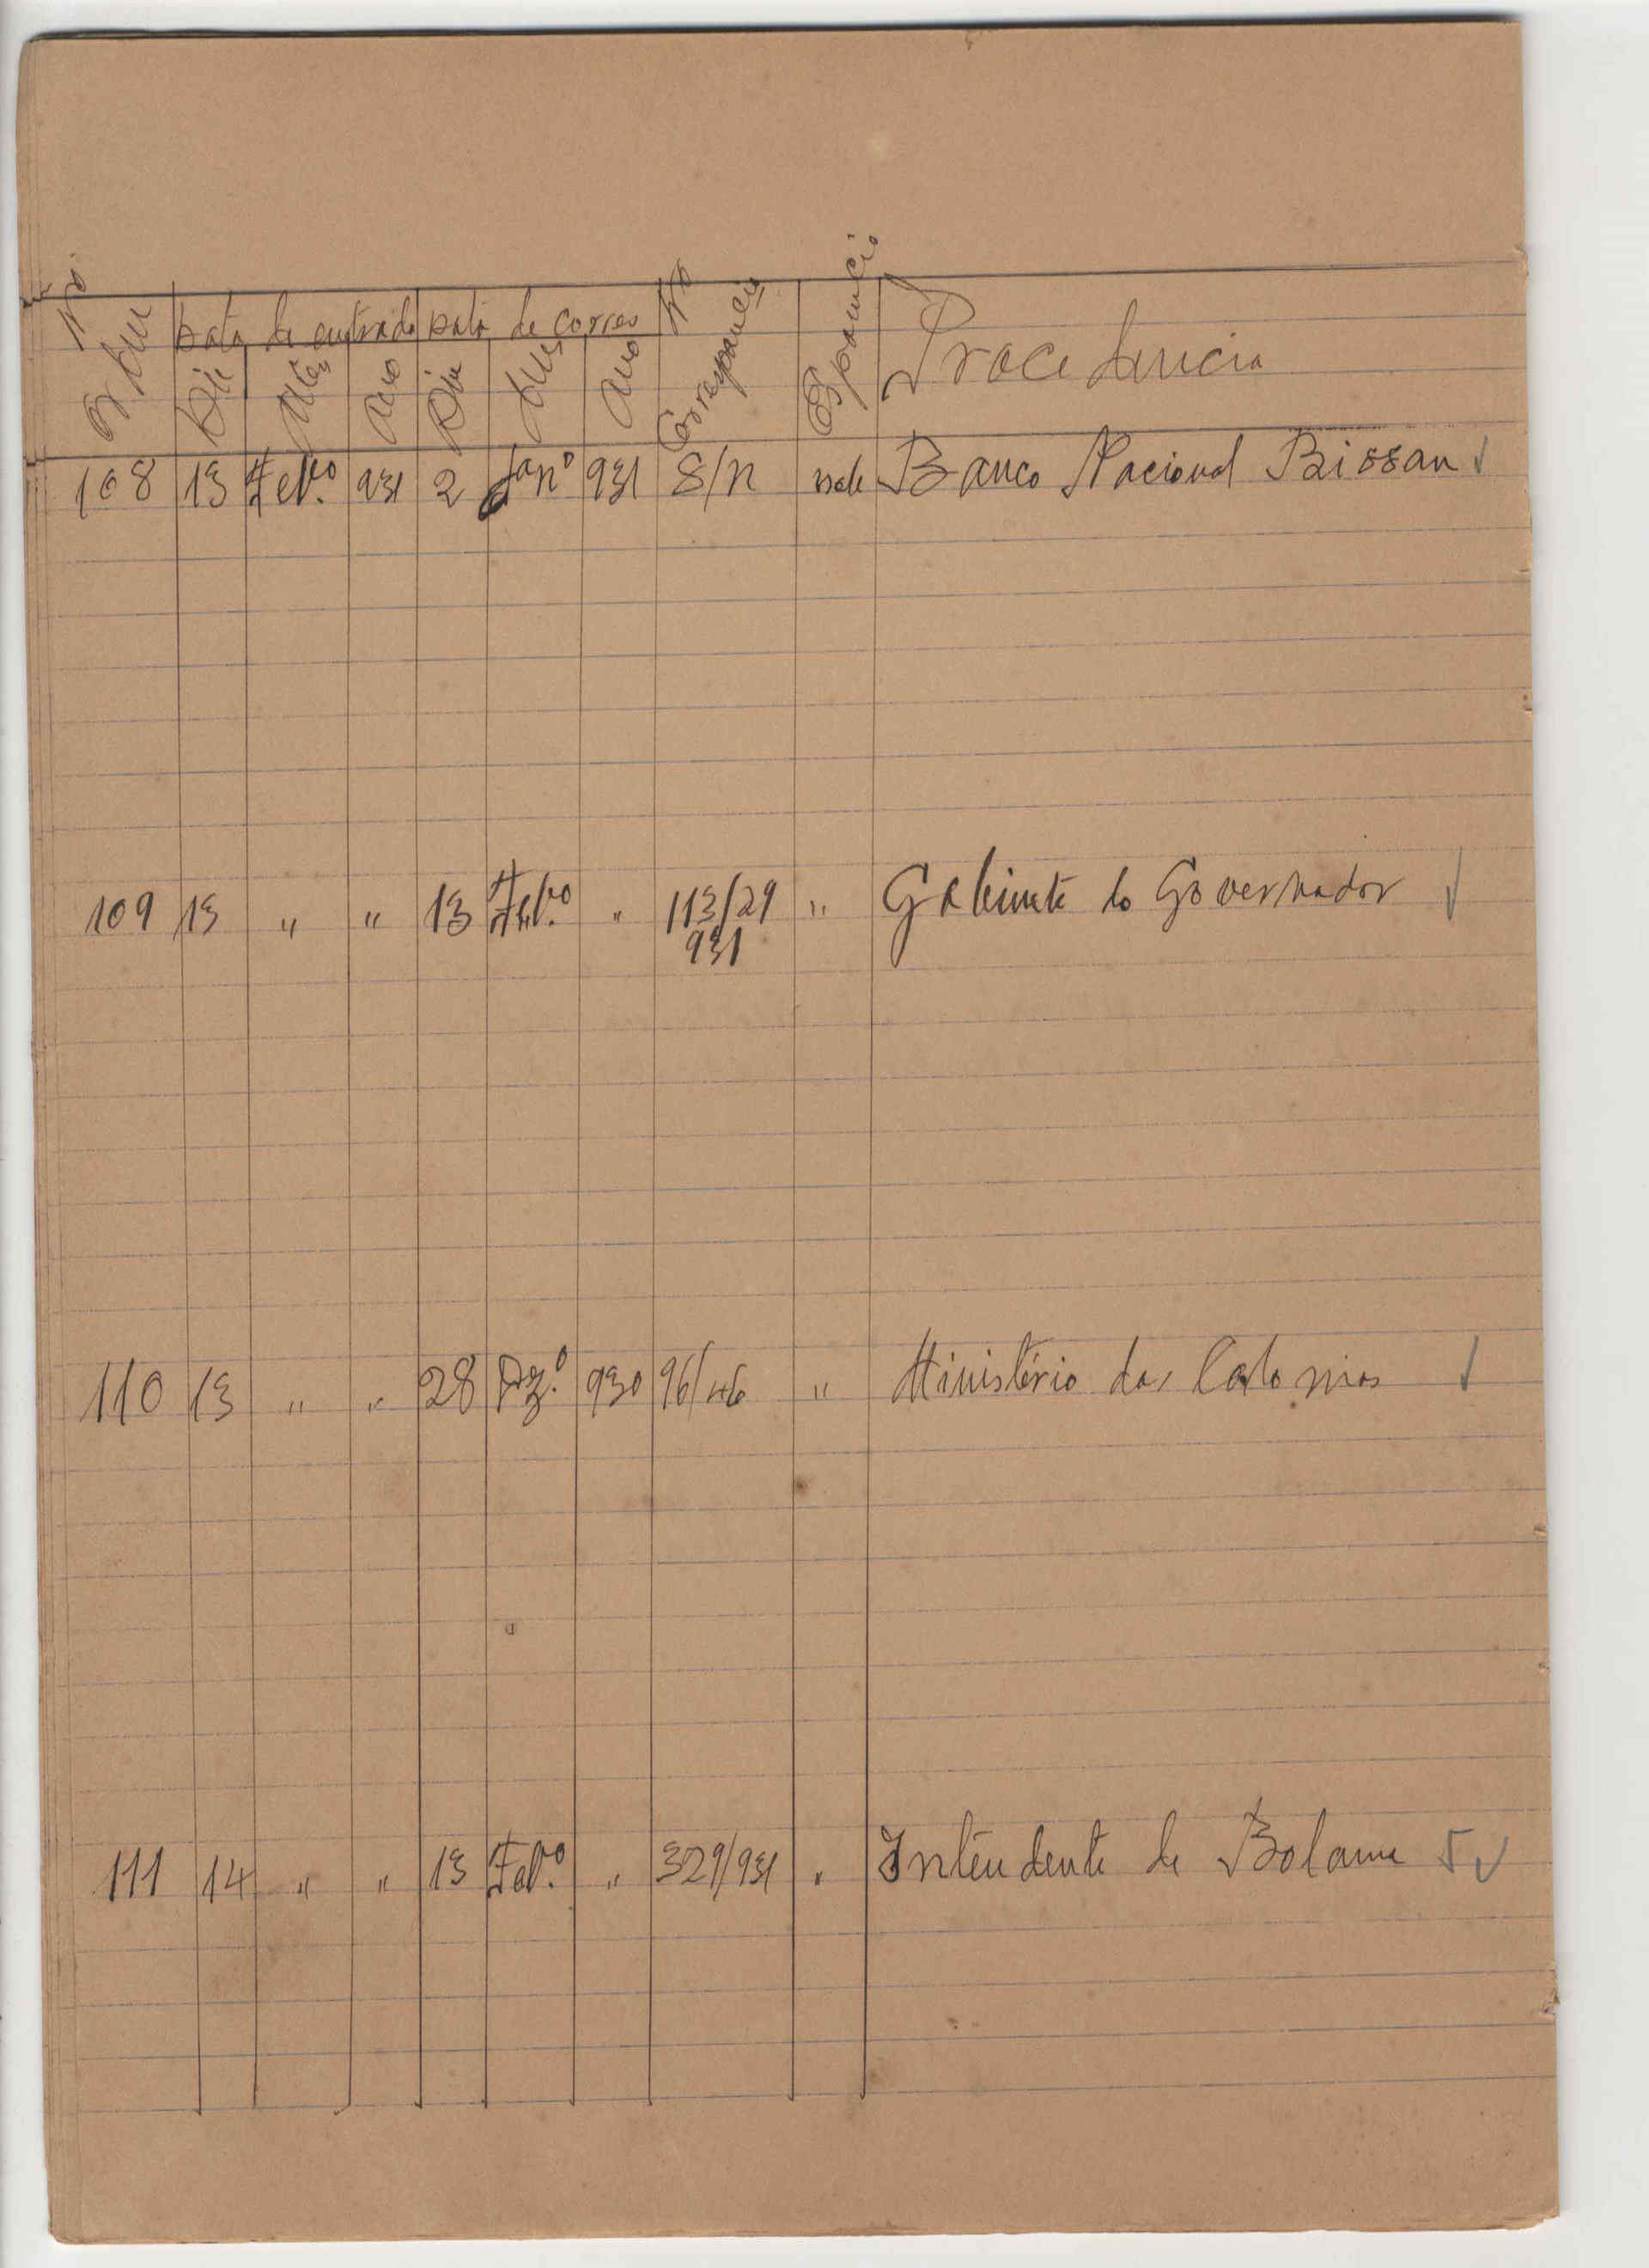 Nº Data de entrada Data de correo Nº
Ordem Dia Mês Ano Dia Mês Ano Espuncio Procedencia
108 13 Fevº. 931 2 Janº 931 S/n Banco Nacional Bissau √
109 13 " " 13 Fevº. " 113/29 " Gabinete do Governador √
931
110 13 " " 28 Dezº. 930 96/46 " Ministério das Colonias √
111 14 " " 13 Fevº. " 329/931 " Intendente de Bolama 5 √